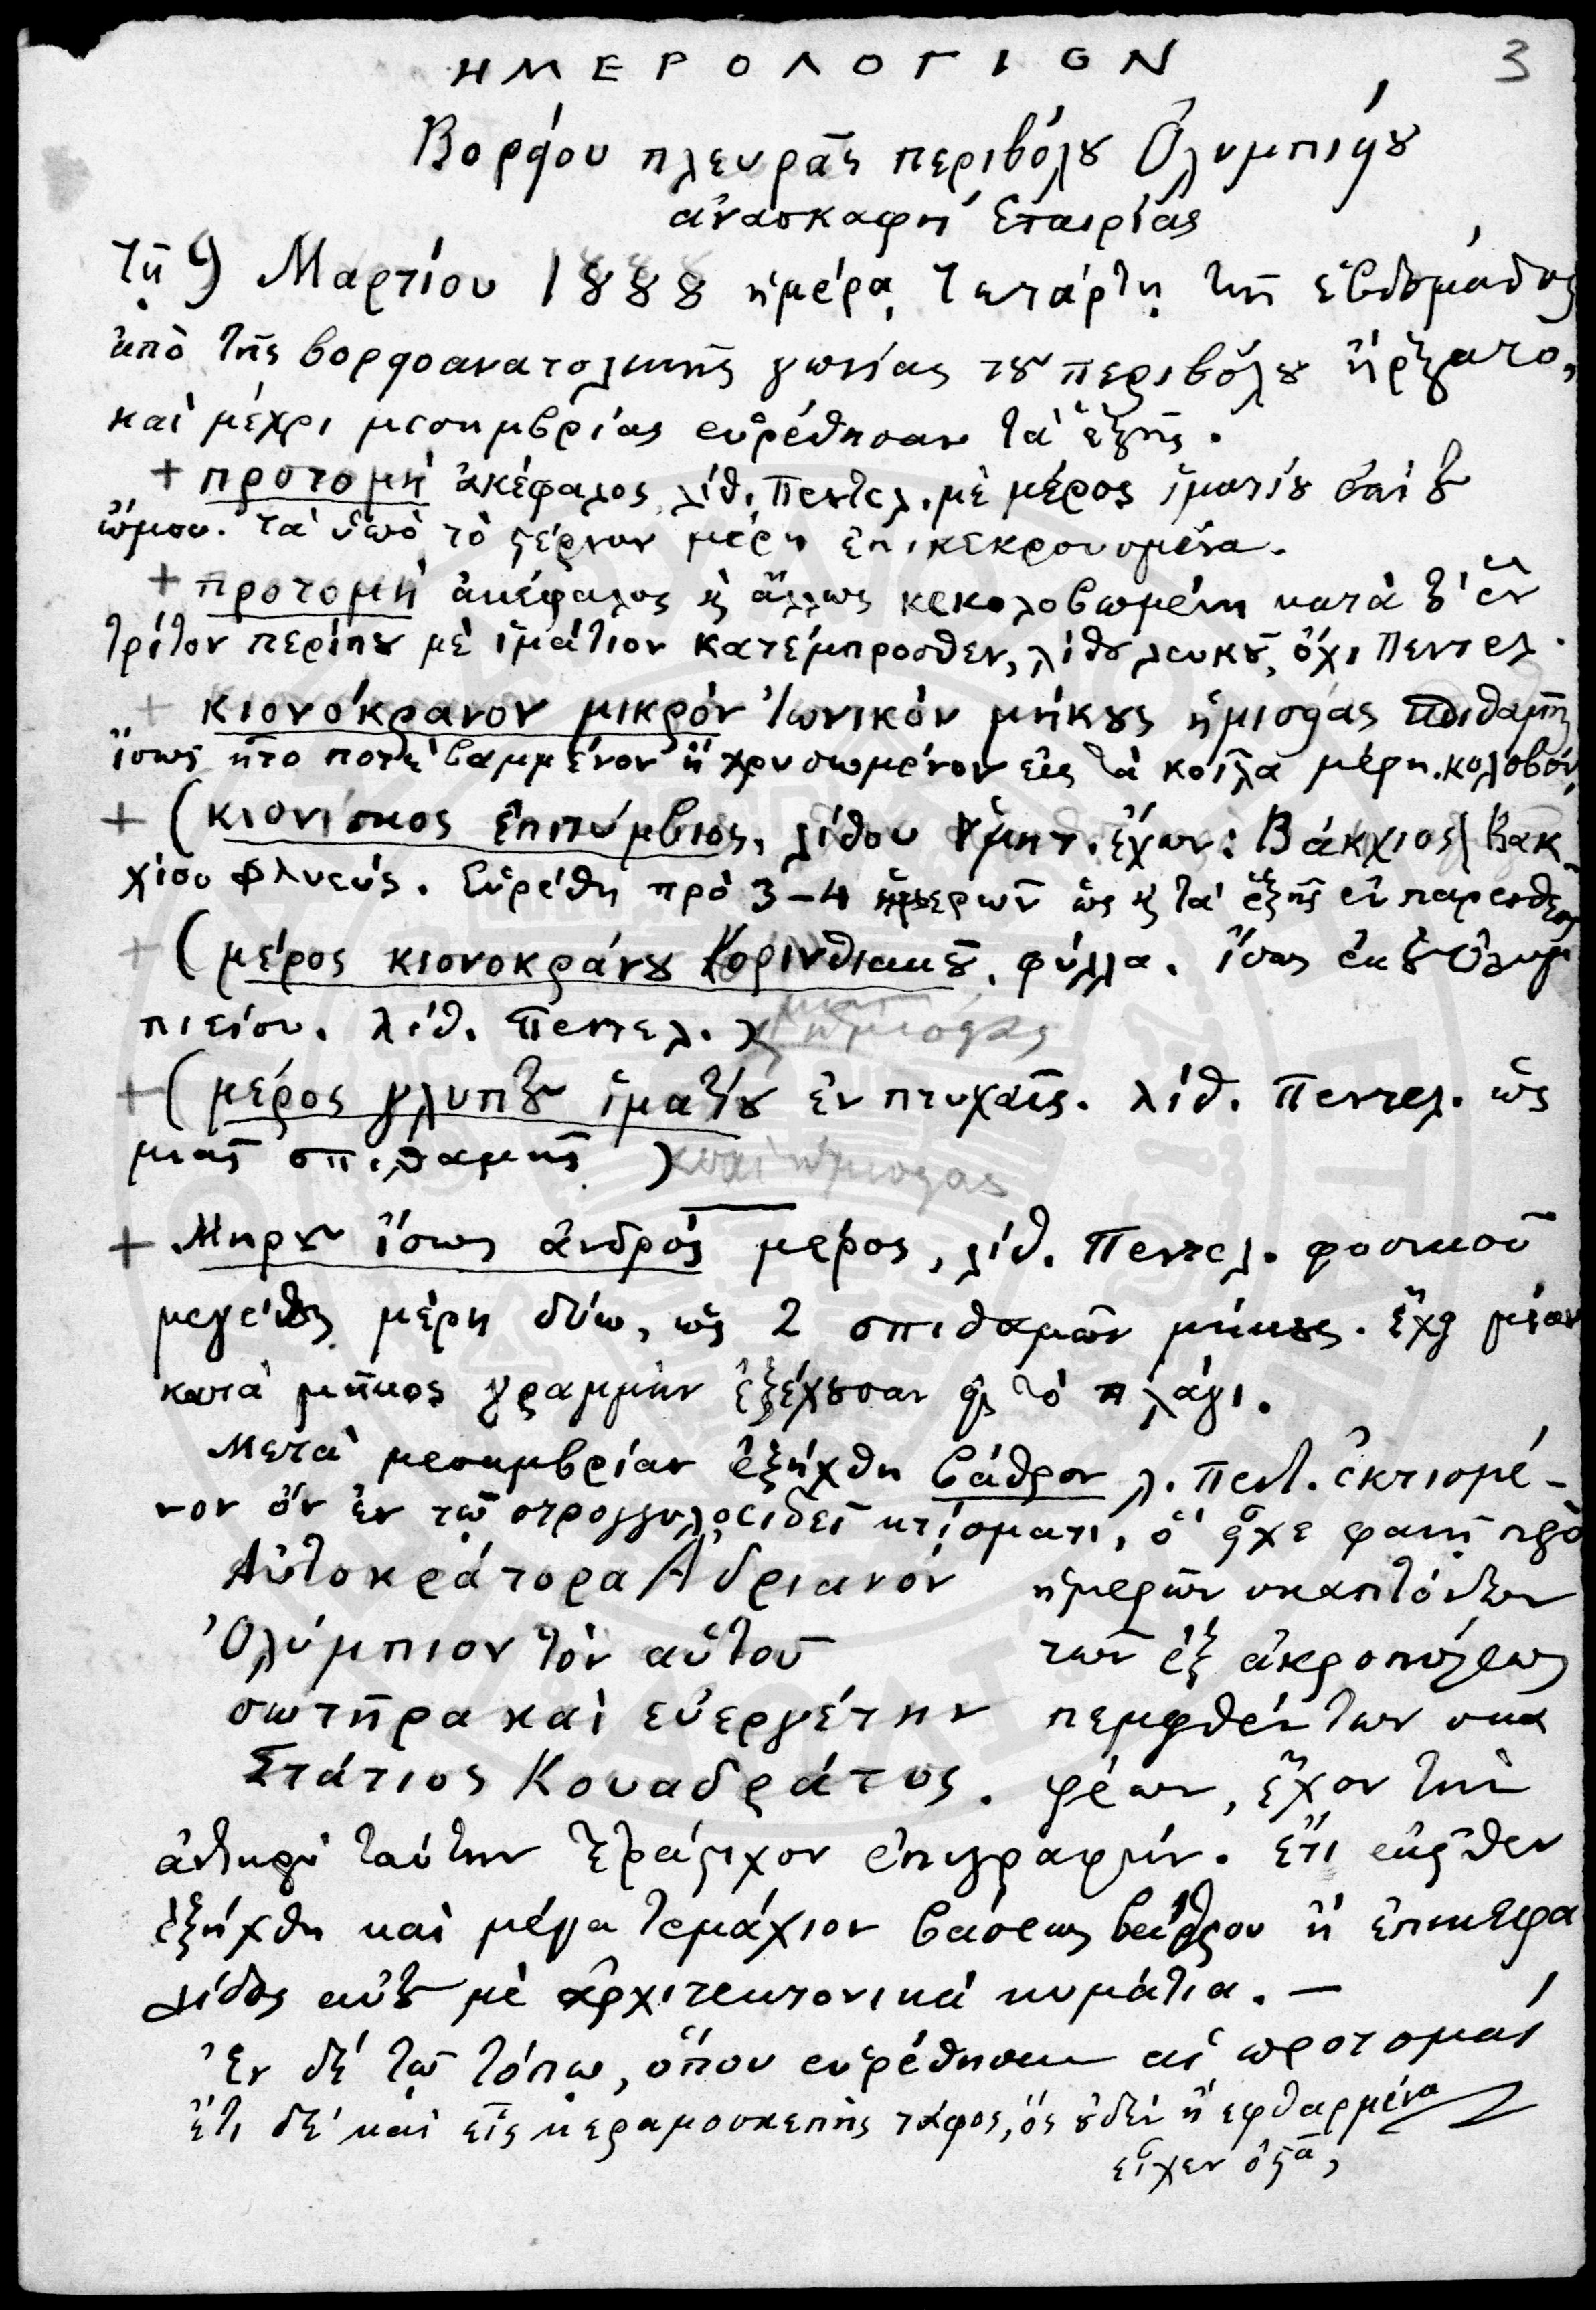 ΗΜΕΡΟΛΟΓΙΟΝ 3
Βορείου πλευρᾶς περιβόλου Ὀλυμπιείου
ἀνασκαφὴ Ἑταιρίας
Τῇ 9 Μαρτίου 1888 ἡμέρᾳ Τετάρτῃ τῆς ἑβδομάδος
ἀπὸ τῆς βορειοανατολικῆς γωνίας τοῦ περιβόλου ἤρξατο,
καὶ μέχρι μεσημβρίας εὑρέθησαν τὰ ἑξῆς.
+ προτομὴ ἀκέφαλος λίθ. Πεντελ. μὲ μέρος ἱματίου ἐπὶ τοῦ
ὤμου. τὰ ὑπὸ τὸ στέρνον μέρη ἐπικεκρουσμένα.
+ προτομὴ ἀκέφαλος καὶ ἄλλως κεκολοβωμένη κατὰ τὸ ἓν
τρίτον περίπου μὲ ἱμάτιον κατέμπροσθεν, λίθου λευκοῦ, ὄχι Πεντελ.
+ κιονόκρανον μικρὸν Ἰωνικὸν μήκους ἡμισείας σπιθαμῆς
ἴσως ἦτο ποτὲ βαμμένον ἢ χρυσωμένον εἰς τὰ κοῖλα μέρη. κολοβόν,
+ (κιονίσκος ἐπιτύμβιος, λίθου Ὑμητ. ἔχων: Βάκχιος| Βακ-
χίου Φλυεύς. Εὑρέθη πρὸ 3–4 ἡμερῶν ὡς καὶ τὰ ἑξῆς ἐν παρενθέσει
+ (μέρος κιονοκράνου Κορινθιακοῦ, φύλλα. ἴσως ἐκ τοῦ Ὀλυμ
πιείου. λίθ. Πεντελ.) ἡμισείας
+ (μέρος γλυπτοῦ ἱματίου ἐν πτυχαῖς. λίθ. Πεντελ. ὡς
μιᾶς σπιθαμῆς) καὶ ἡμισείας
+ Μηροῦ ἴσως ἀνδρὸς μέρος, λίθ. Πεντελ. φυσικοῦ
μεγέθους μέρη δύω, ὡς 2 σπιθαμῶν μήκους. ἔχει μίαν
κατὰ μῆκος γραμμὴν ἐξέχουσαν εἰς τὸ πλάγι.
Μετὰ μεσημβρίαν ἐξήχθη βάθρον λ. Πεντ. ἐκτισμέ-
νον ὂν ἐν τῷ στρογγυλοειδεῖ κτίσματι, ὃ εἶχε φανῇ πρὸ
Αὐτοκράτορα Ἁδριανὸν ἡμερῶν σκαπτόντων
Ὀλύμπιον τὸν αὑτοῦ τῶν ἐξ ἀκροπόλεως
σωτῆρα καὶ εὐεργέτην πεμφθέντων σκα
Στάτιος Κουαδράτος. φέων, ἔχον τὴν
ἀντικρὺ ταύτην τετράστιχον ἐπιγραφήν. ἔτι ἐκεῖθεν
ἐξήχθη καὶ μέγα τεμάχιον βάσεως βάθρου ἢ ἐπικεφα
λίδος αὐτοῦ μὲ ἀρχιτεκτονικὰ κυμάτια. –
Ἐν δὲ τῷ τόπῳ, ὅπου εὑρέθησαν αἱ προτομαὶ
ἔτι δὲ καὶ εἷς κεραμοσκεπὴς τάφος, ὃς οὐδὲν ἢ ἐφθαρμένα
εἶχεν ὀστᾶ,